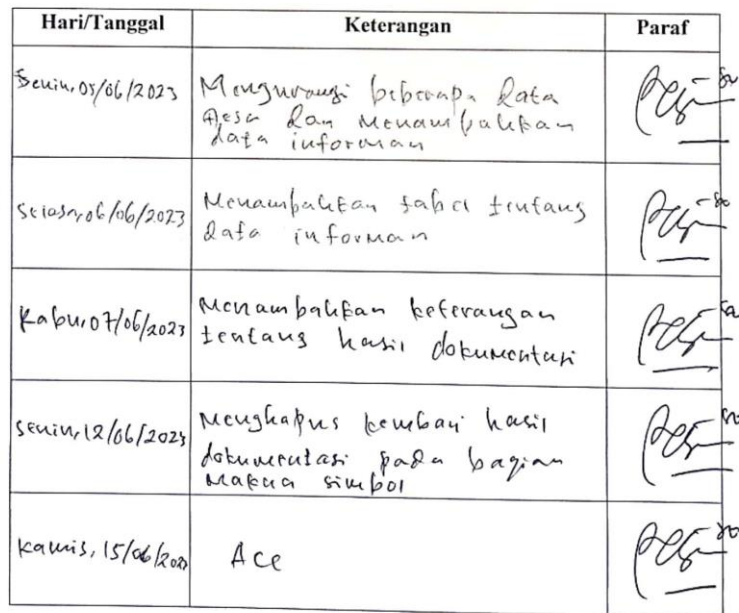 Hari/Tanggal Keterangan Paraf
Senin, 05/06/2023 Mengurangi beberapa data
desa dan Menambahkan
data informan
Selasa, 06/06/2023 Menambahkan tabel tentang
data informan
Rabu, 07/06/2023 Menambahkan keterangan
tentang hasil dokumentasi
Senin, 12/06/2023 Menghapus kembali hasil
dokumentasi pada bagian
Makna simbol
Kamis, 15/06/2023 Acc